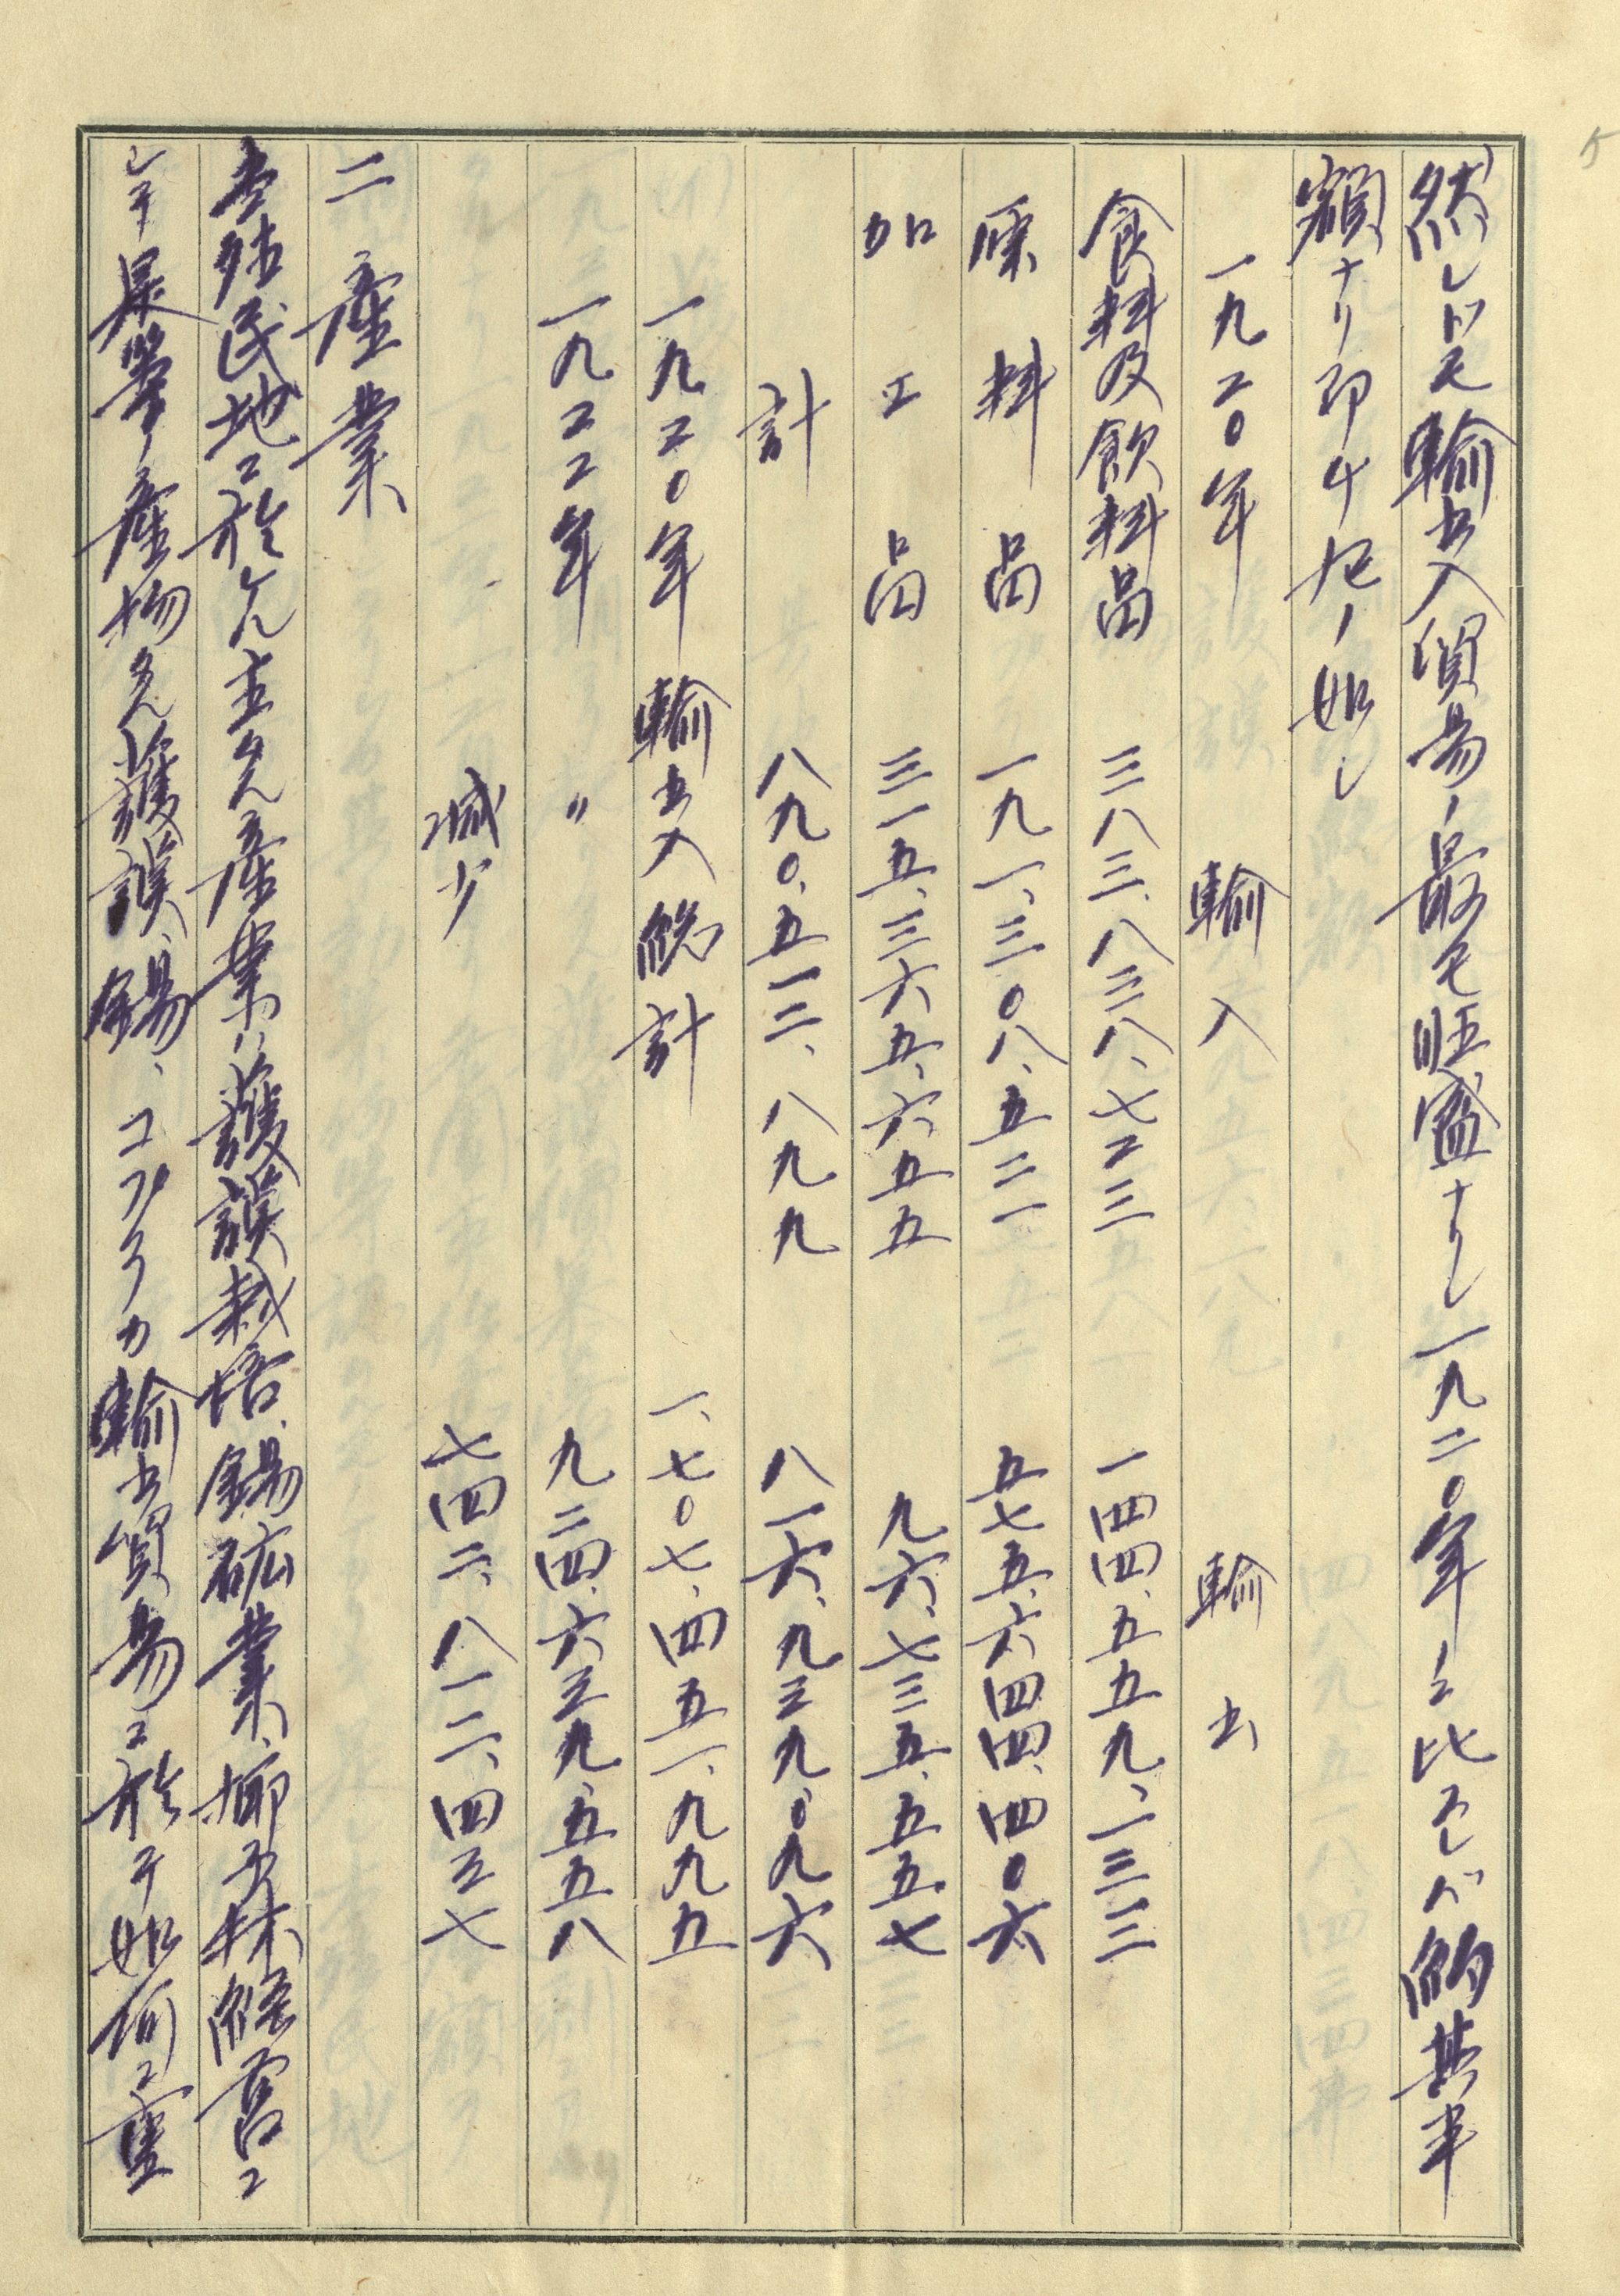 5
然レドモ輸出入貿易ノ最モ旺盛ナリシ一九二〇年ニ比スレバ約其半
額ナリ即チ左ノ如シ
一九二〇年　輸入　輸出
食料及飲料品　三八三、八三八、七二三　一四四、五五九、一三三
原料品　一九一、三〇八、五二一　五七五、六四四、四〇六
加工品　三一五、三六五、六五五　九六、七三五、五五七
計　八九〇、五一二、八九九　八一六、九三九、〇九六
一九二〇年　輸出入総計　一、七〇七、四五一、九九五
一九二二年　〃　九二四、六三九、五五八
減少　七四二、八一二、四三七
二　産業
當殖民地ニ於ケル主タル産業ハ護謨栽培、錫砿業、椰子林経営ニ
シテ是等ノ産物タル護謨、錫、コプラカ輸出貿易ニ於テ如何ニ重